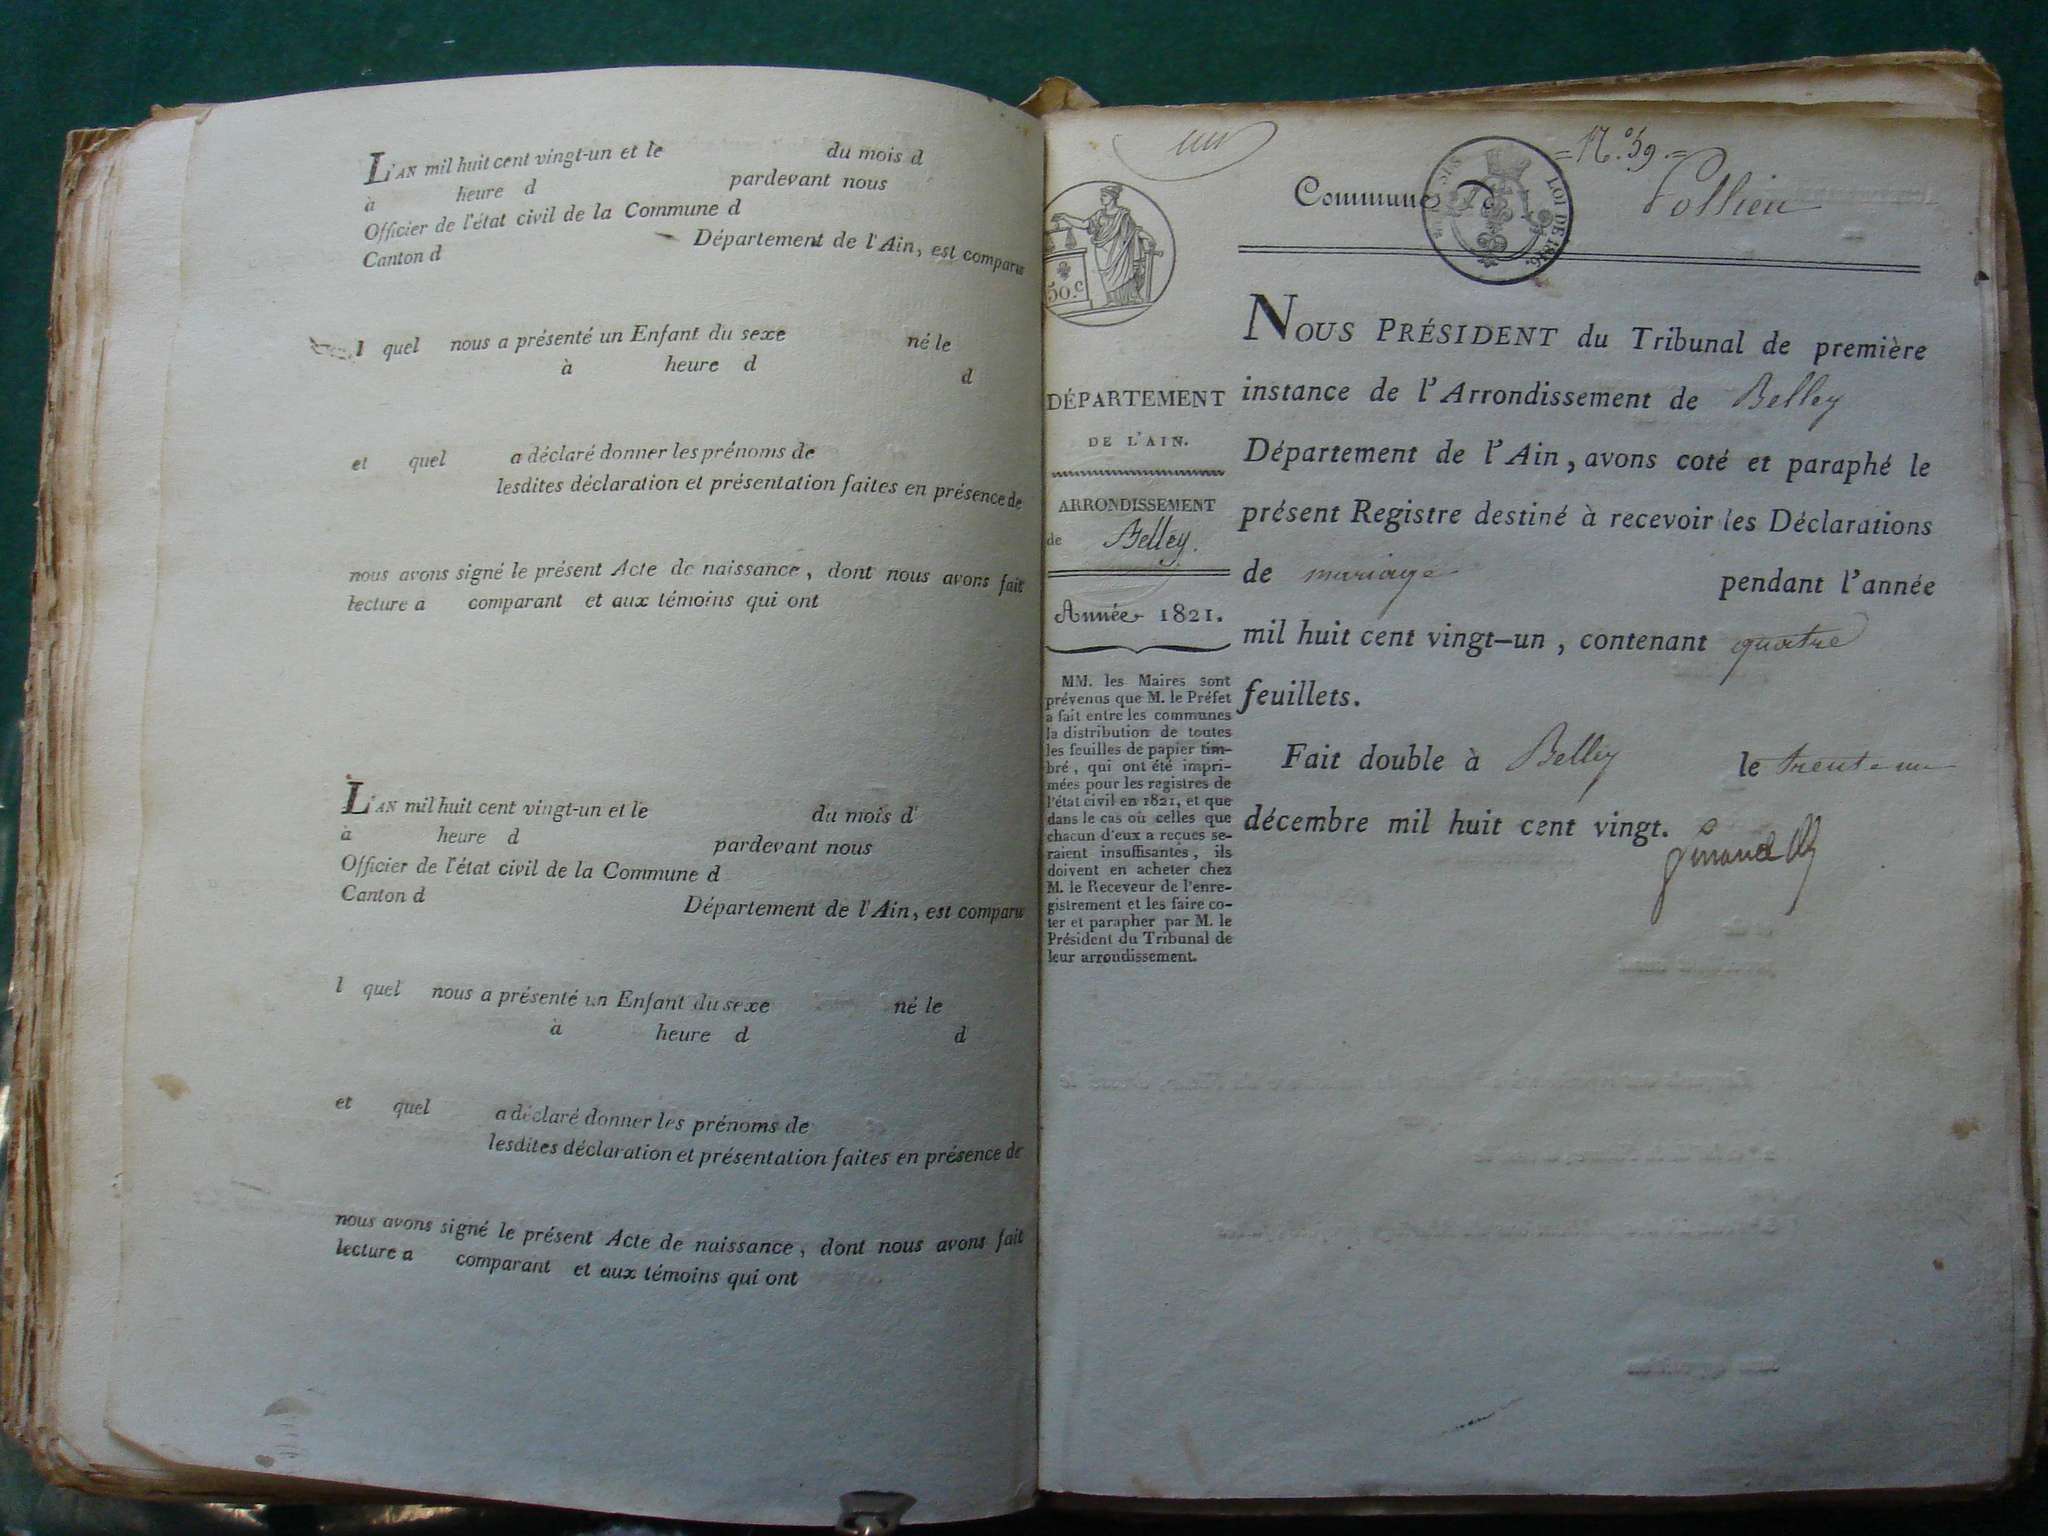 L'AN mil huit cent vingt-un et le du mois d
à heure d pardevant nous
Officier de l'état civil de la Commune d
Canton d Département de l'Ain, est comparu
l quel nous a présenté un Enfant du sexe né le
à heure d d
et quel a déclaré donner les prénoms de
lesdites déclaration et présentation faites en présence de
nous avons signé le présent Acte de naissance, dont nous avons fait
lecture a comparant et aux témoins qui ont
L'AN mil huit cent vingt-un et le du mois d
à heure d pardevant nous
Officier de l'état civil de la Commune d
Canton d Département de l'Ain, est comparu
l quel nous a présenté un Enfant du sexe né le
à heure d d
et quel a déclaré donner les prénoms de
lesdites déclaration et présentation faites en présence de
nous avons signé le présent Acte de naissance, dont nous avons fait
lecture a comparant et aux témoins qui ont
un
=N.° 59.=
Commune De Pollieu
LOI DE 1816.
50.c
DÉPARTEMENT
DE L'AIN.
ARRONDISSEMENT
de Belley.
Année 1821.
MM. les Maires sont
prévenus que M. le Préfet
a fait entre les communes
la distribution de toutes
les feuilles de papier tim-
bré, qui ont été impri-
mées pour les registres de
l'état civil en 1821, et que
dans le cas où celles que
chacun d'eux a reçues se-
raient insuffisantes, ils
doivent en acheter chez
M. le Receveur de l'enre-
gistrement et les faire co-
ter et parapher par M. le
Président du Tribunal de
leur arrondissement.
NOUS PRÉSIDENT du Tribunal de première
instance de l'Arrondissement de Belley
Département de l'Ain, avons coté et paraphé le
présent Registre destiné à recevoir les Déclarations
de mariage pendant l'année
mil huit cent vingt-un, contenant quatre
feuillets.
Fait double à Belley le trente un
décembre mil huit cent vingt.